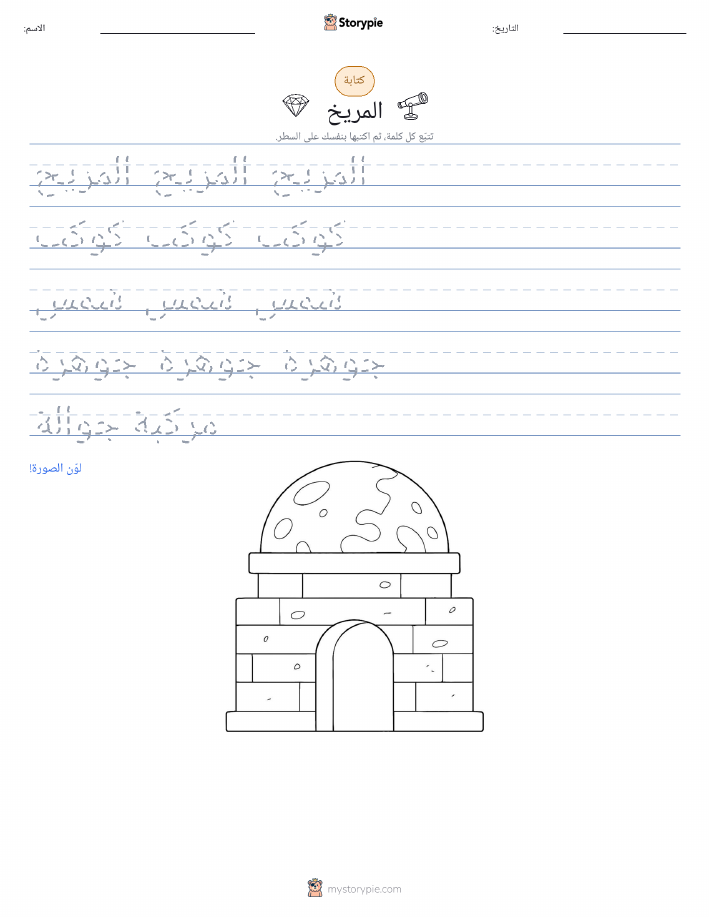 الاسم:
Storypie
التاريخ:
كتابة
المريخ
تتبّع كل كلمة، ثم اكتبها بنفسك على السطر.
المريخ المريخ المريخ
كوكب كوكب كوكب
شمس شمس شمس
جوهرة جوهرة جوهرة
مركبة جوالة
لوّن الصورة!
mystorypie.com